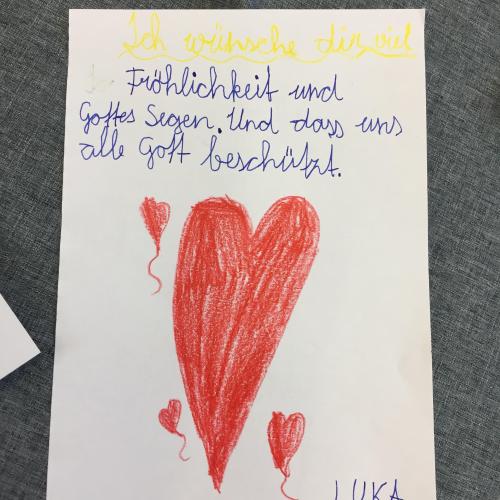 Ich wünsche dir viel
Fröhlichkeit und
Gottes Segen. Und dass uns
alle Gott beschützt.
LUKA